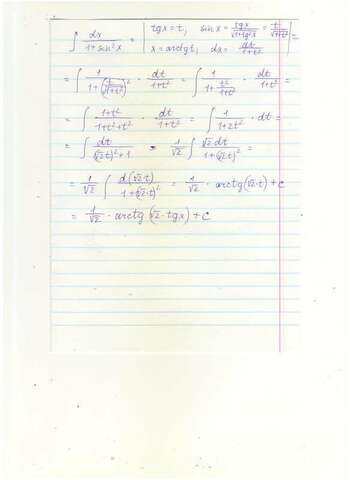 ∫ dx/(1+sin²x) = | tgx = t, sin x = tgx/√(1+tg²x) = t/√(1+t²) | =
| x = arctgt, dx = dt/(1+t²) |
= ∫ 1/(1+(t/√(1+t²))²) · dt/(1+t²) = ∫ 1/(1+t²/(1+t²)) · dt/(1+t²) =
= ∫ (1+t²)/(1+t²+t²) · dt/(1+t²) = ∫ 1/(1+2t²) · dt =
= ∫ dt/((√2t)²+1) = 1/√2 ∫ √2dt/(1+(√2·t)²) =
= 1/√2 ∫ d(√2·t)/(1+(√2·t)²) = 1/√2 · arctg(√2·t)+C
= 1/√2 · arctg(√2·tgx)+C